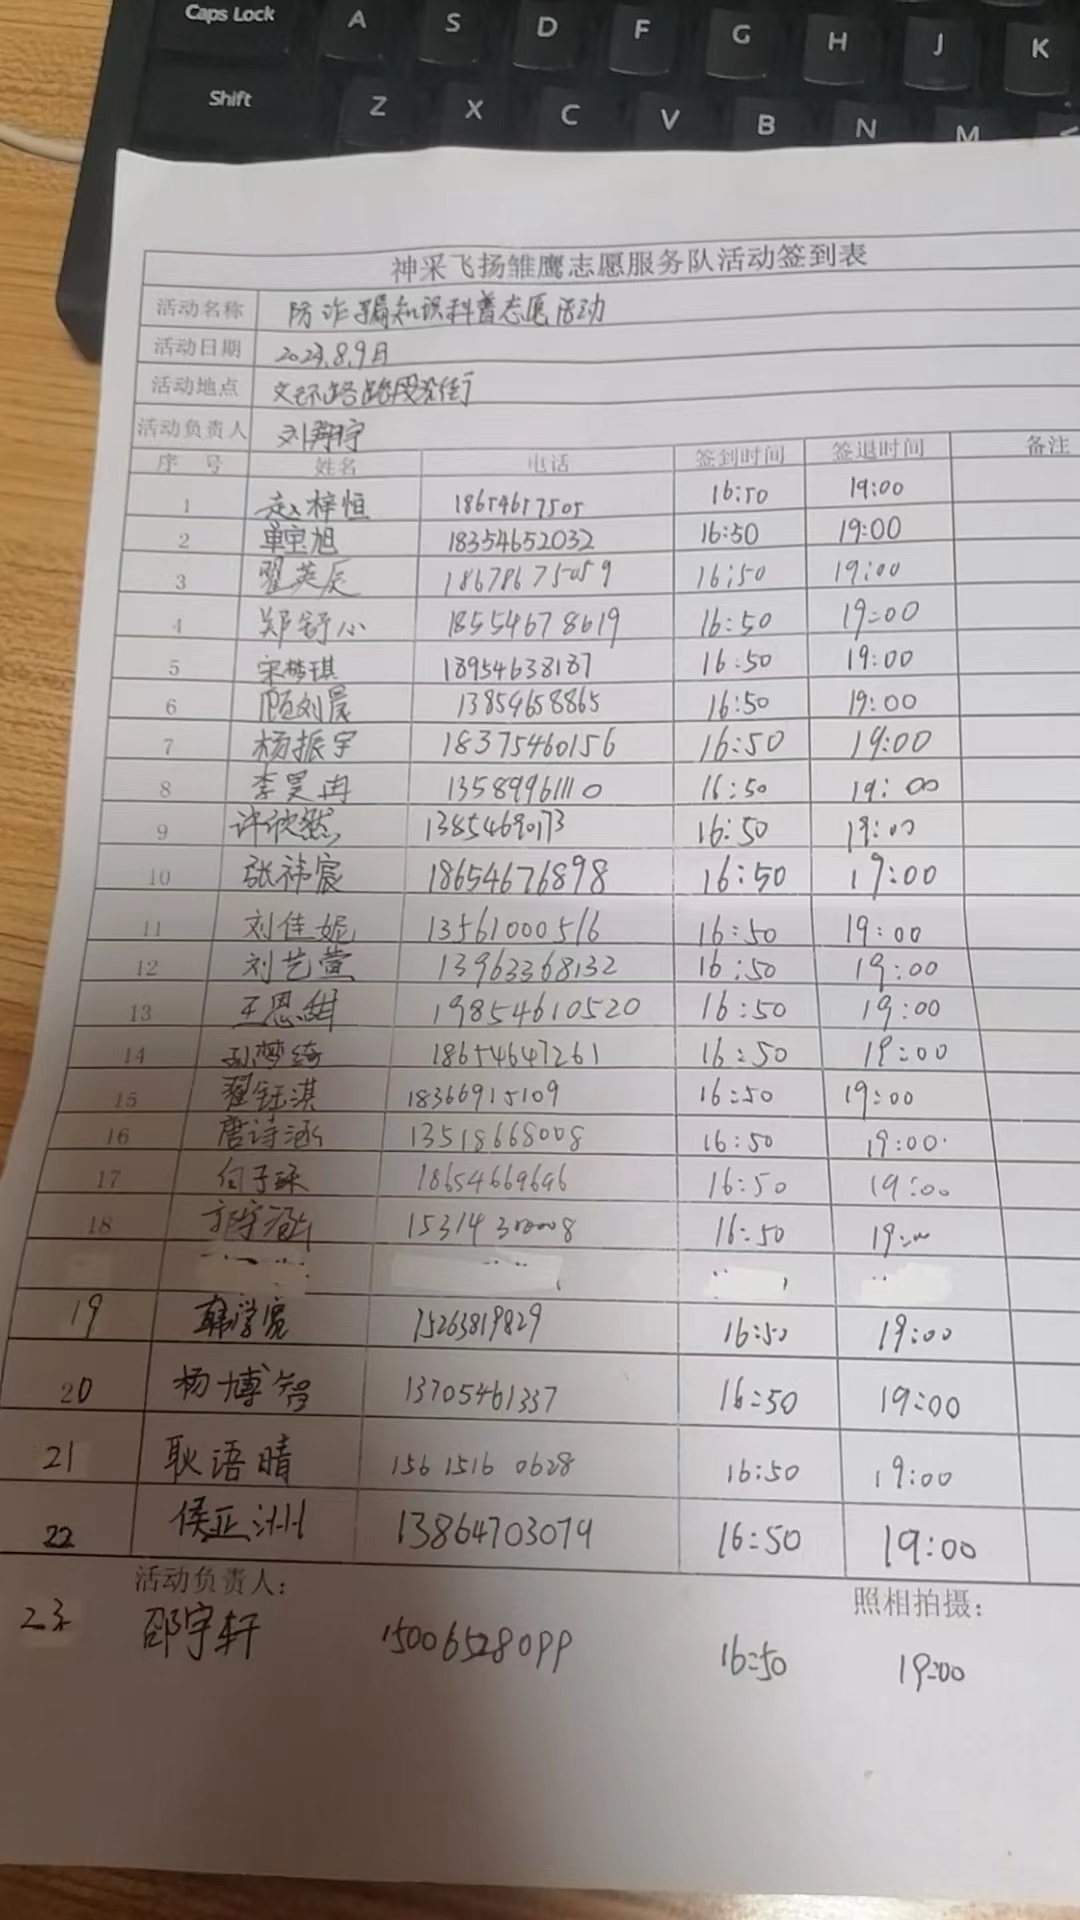 Caps Lock A S D F G H J K
Shift Z X C V B N M <
神采飞扬雏鹰志愿服务队活动签到表
活动名称 防诈骗知识科普志愿活动
活动日期 2023.8.9日
活动地点 文环路路段沿街
活动负责人 刘翔宇
序 号 姓名 电话 签到时间 签退时间 备注
1 赵梓恒 18654657505 16:50 19:00
2 单宝旭 18354652032 16:50 19:00
3 翟英辰 18678675059 16:50 19:00
4 郑舒心 18554678619 16:50 19:00
5 宋梦琪 18954638187 16:50 19:00
6 顾刘晨 13854658865 16:50 19:00
7 杨振宇 18375460156 16:50 19:00
8 李昊冉 13589961110 16:50 19:00
9 许欣然 13854690173 16:50 19:00
10 张祎宸 18654676898 16:50 19:00
11 刘佳妮 13561000516 16:50 19:00
12 刘艺萱 13963368132 16:50 19:00
13 王恩甜 19854610520 16:50 19:00
14 孙梦绮 18654647261 16:50 19:00
15 翟钰淇 18366915109 16:50 19:00
16 唐诗涵 13518668008 16:50 19:00
17 向子琢 18654669696 16:50 19:00
18 16:50 19:00
19 韩学宽 15263819829 16:50 19:00
20 杨博智 13705461337 16:50 19:00
21 耿语晴 156 1516 0628 16:50 19:00
22 侯亚洲 13864703079 16:50 19:00
活动负责人: 照相拍摄:
23 邵宇轩 15006528099 16:50 19:00